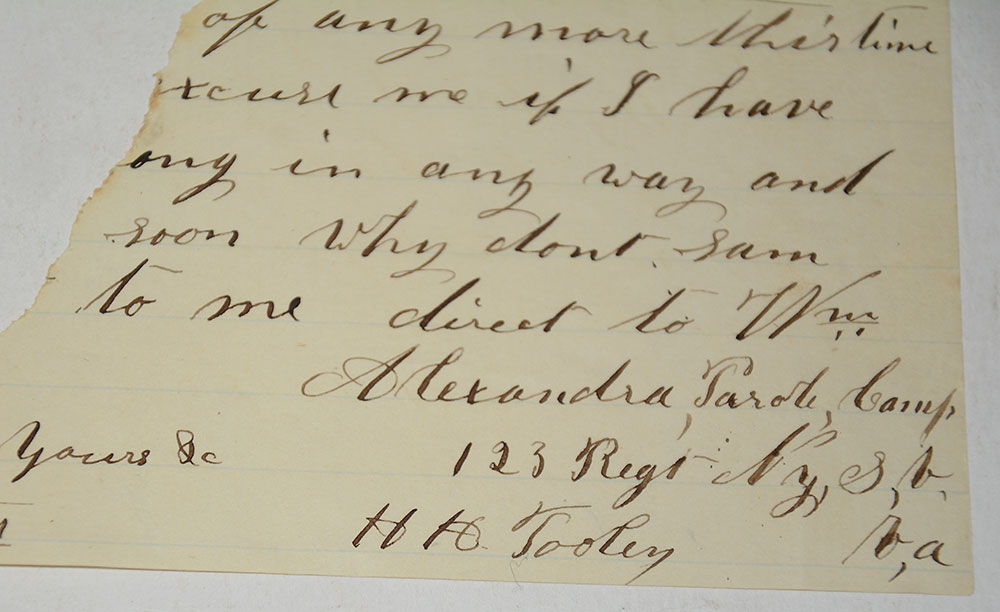 of any more this time
xcuse me if I have
ong in any way and
soon Why dont sam
to me direct to Wm
Alexandra, Parole, Camp
Yours &c 123 Regt N y, S, V,
H H. Tooley V, a